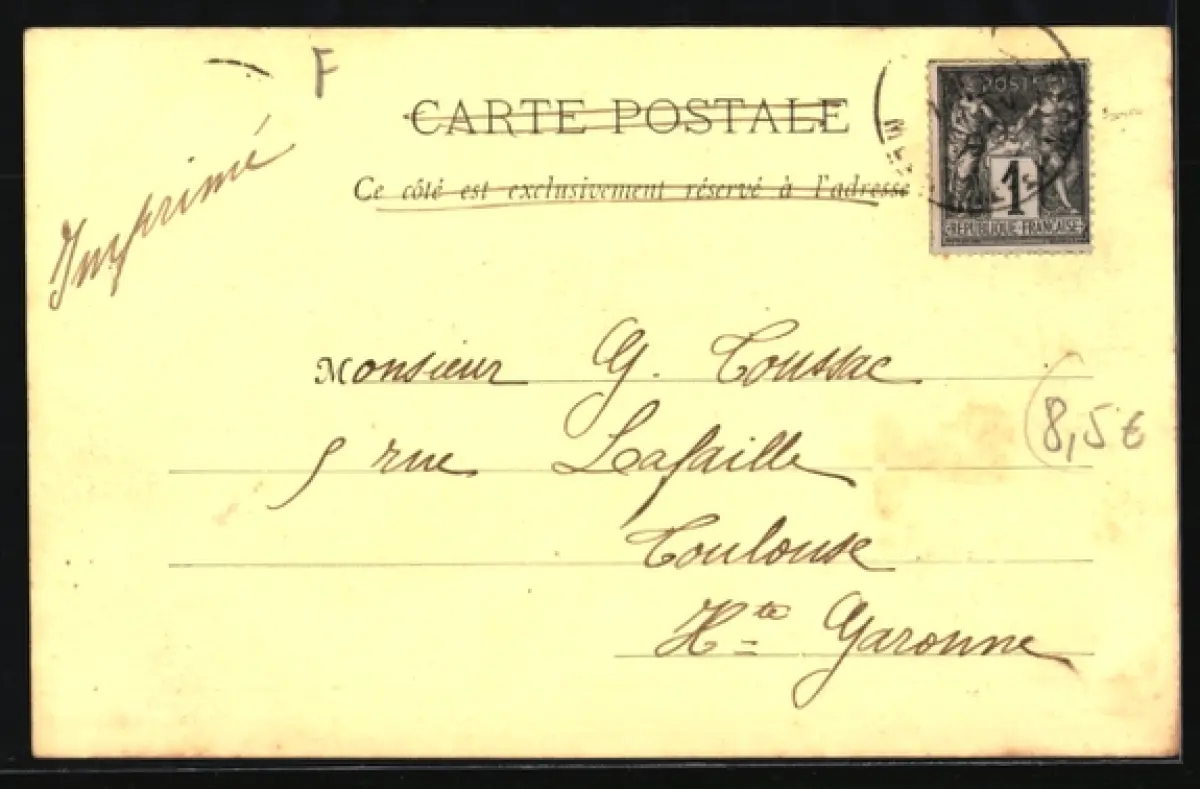 F
CARTE POSTALE
Ce côté est exclusivement réservé à l'adresse
Imprimé
POSTES
1
RÉPUBLIQUE FRANÇAISE
Monsieur G. Toussac
5 rue Lafaille
Toulouse
Hte Garonne
8,5 €